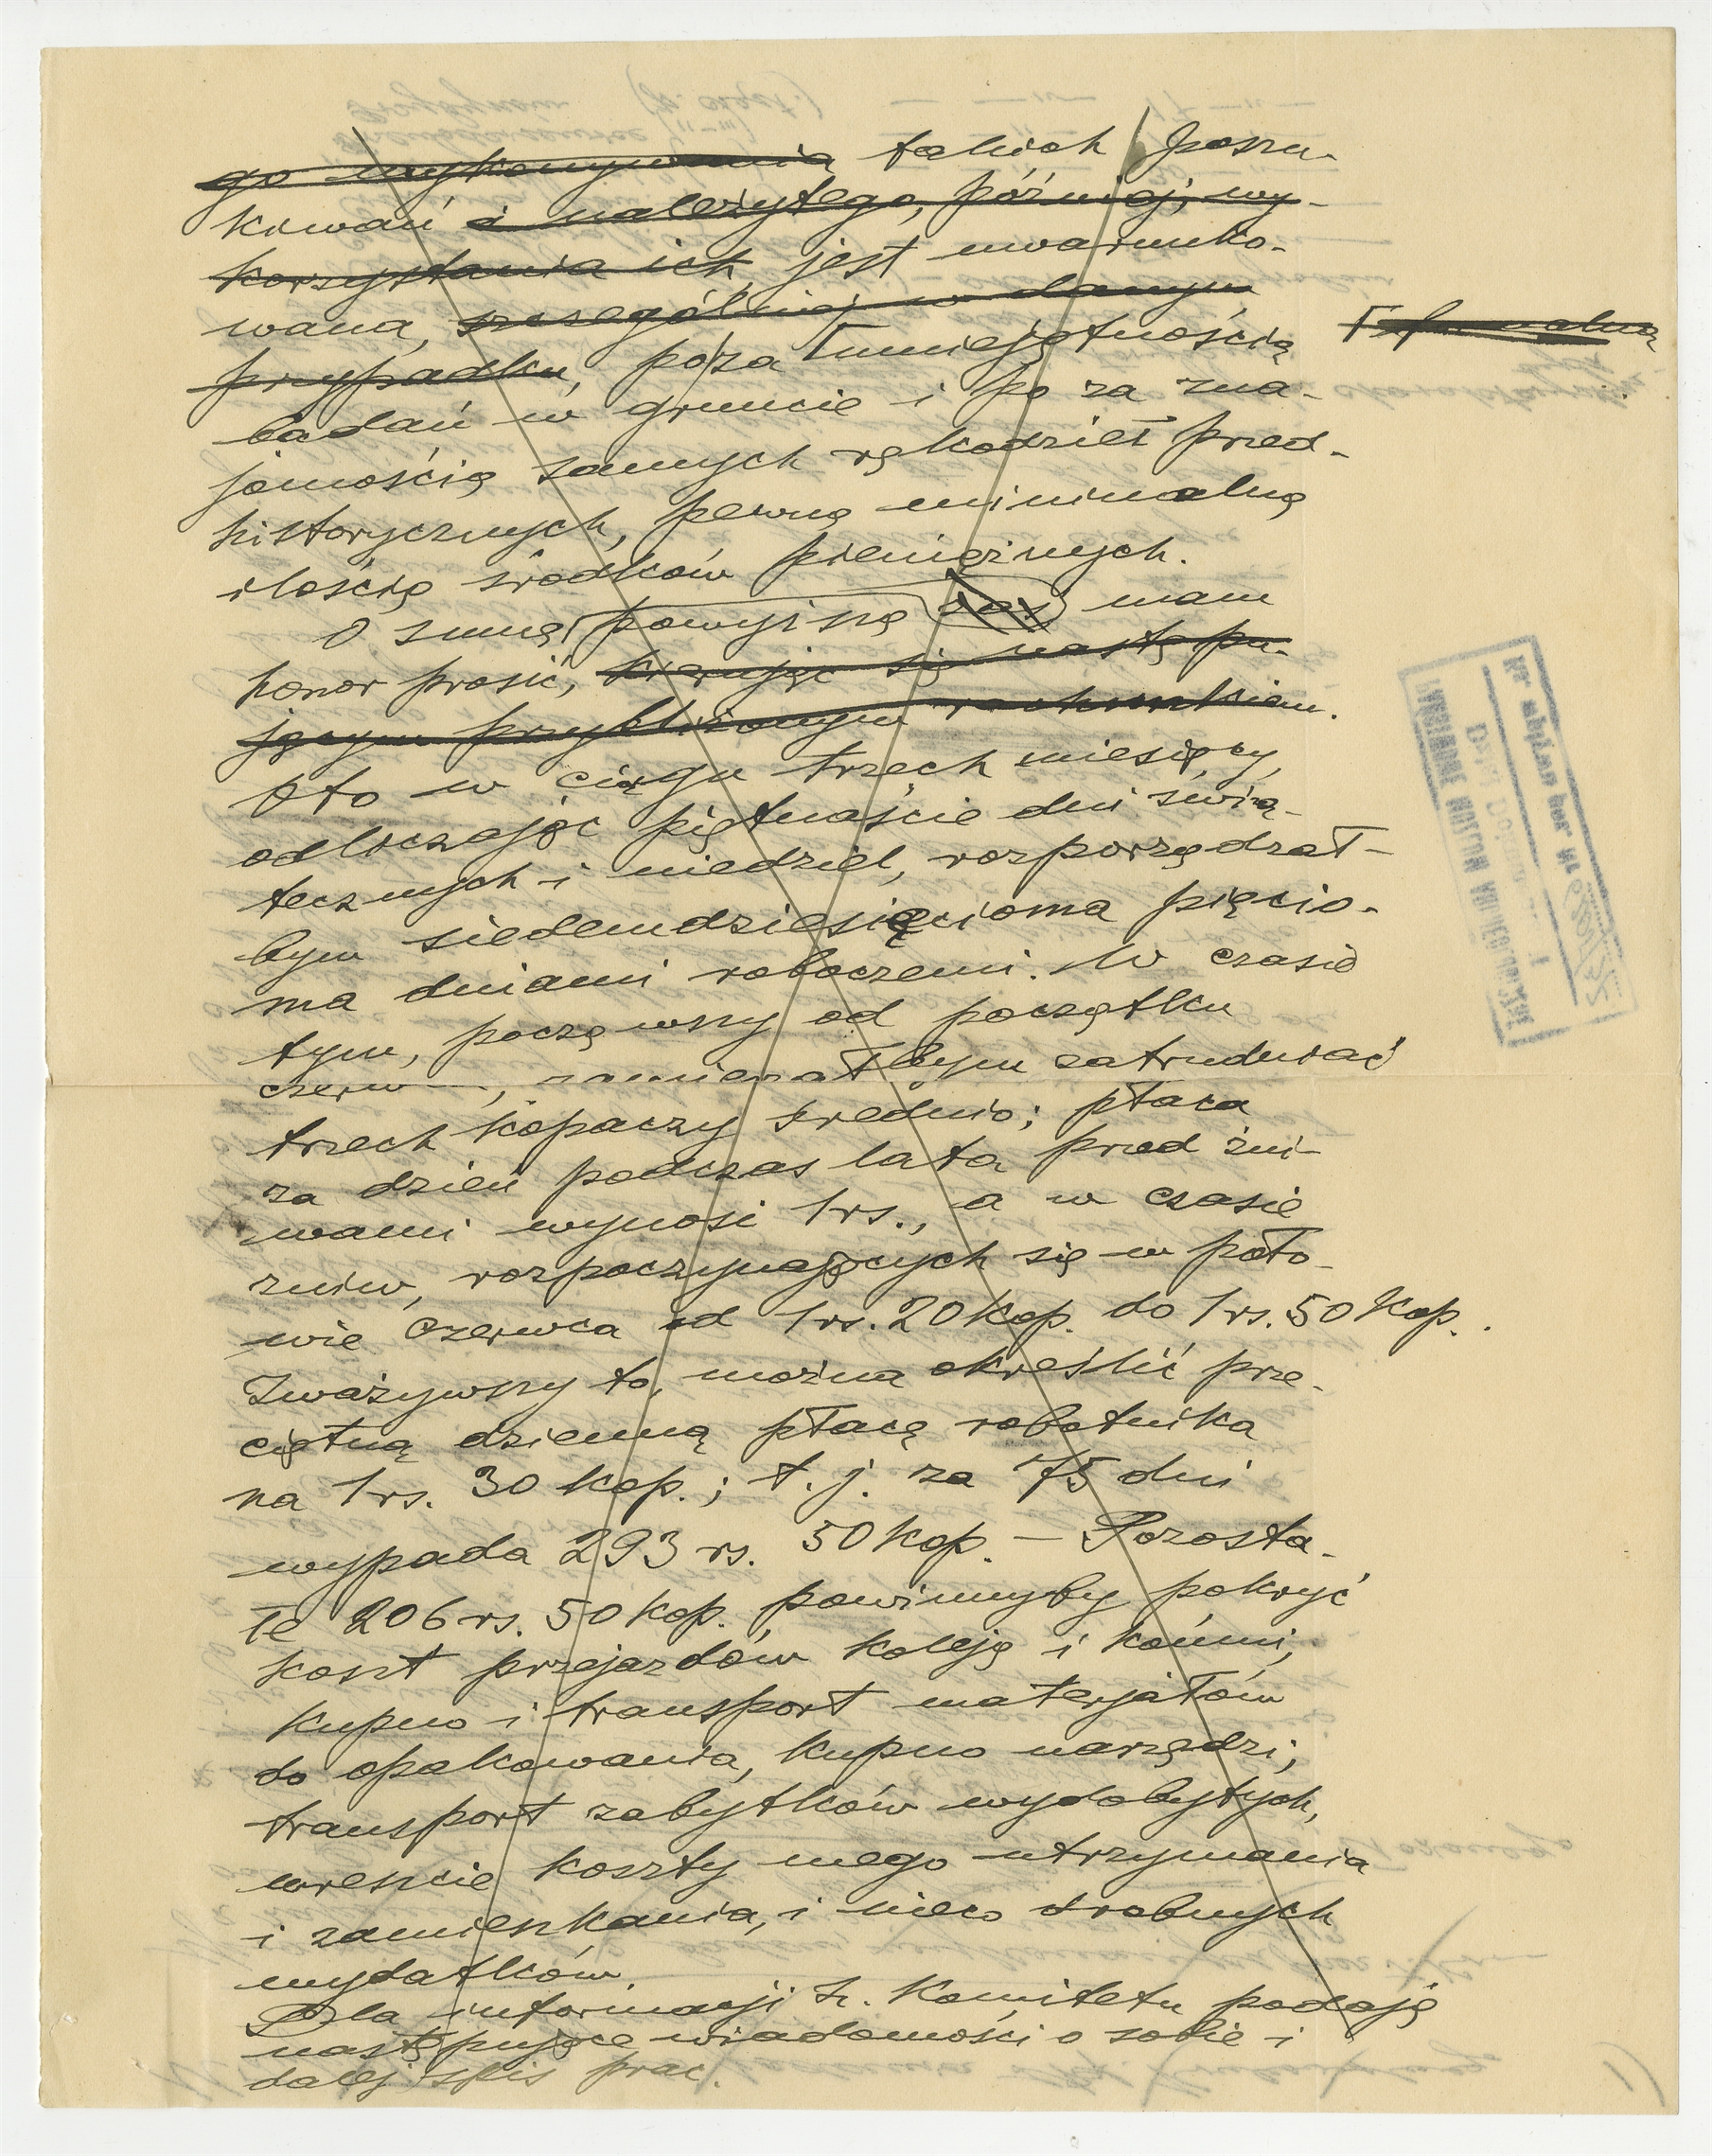 go wykonywania takich poszu-
kiwań i należytego, później, wy-
korzystania ich jest uwarunko-
wana, szczególniej w danym
przypadku, poza umiejętnością
badań w gruncie i po za zna-
jomością samych rękodzieł przed-
historycznych, pewną minimalną
ilością środków pieniężnych.
O sumę powyższą mam
honor prosić, kierując się nastę pu-
jącym przybliżonym rachunkiem.
Oto w ciągu trzech miesięcy,
odliczając piętnaście dni świą-
tecznych i niedziel, rozporządzał-
bym siedemdziesięcioma pięcio-
ma dniami roboczemi. W czasie
tym, począwszy od początku
czerw, zamierzałbym zatrudniać
trzech kopaczy średnio; płaca
za dzień podczas lata przed żni-
wami wynosi 1 rs., a w czasie
żniw, rozpoczynających się w poło-
wie czerwca od 1 rs. 20 kop. do 1 rs. 50 kop.
Zważywszy to, można określić prze-
ciętną dzienną płacę robotnika
na 1 rs. 30 kop.; t. j. za 75 dni
wypada 293 rs. 50 kop. – Pozosta-
łe 206 rs. 50 kop. powinnyby pokryć
koszt przejazdów koleją i końmi,
kupno i transport materjałów
do opakowania, kupno narzędzi,
transport zabytków wydobytych,
wreszcie koszty mego utrzymania
i zamieszkania, i nieco drobnych
wydatków.
Dla informacji Sz. Komitetu podaję
następujące wiadomości o sobie i
dalej spis prac.